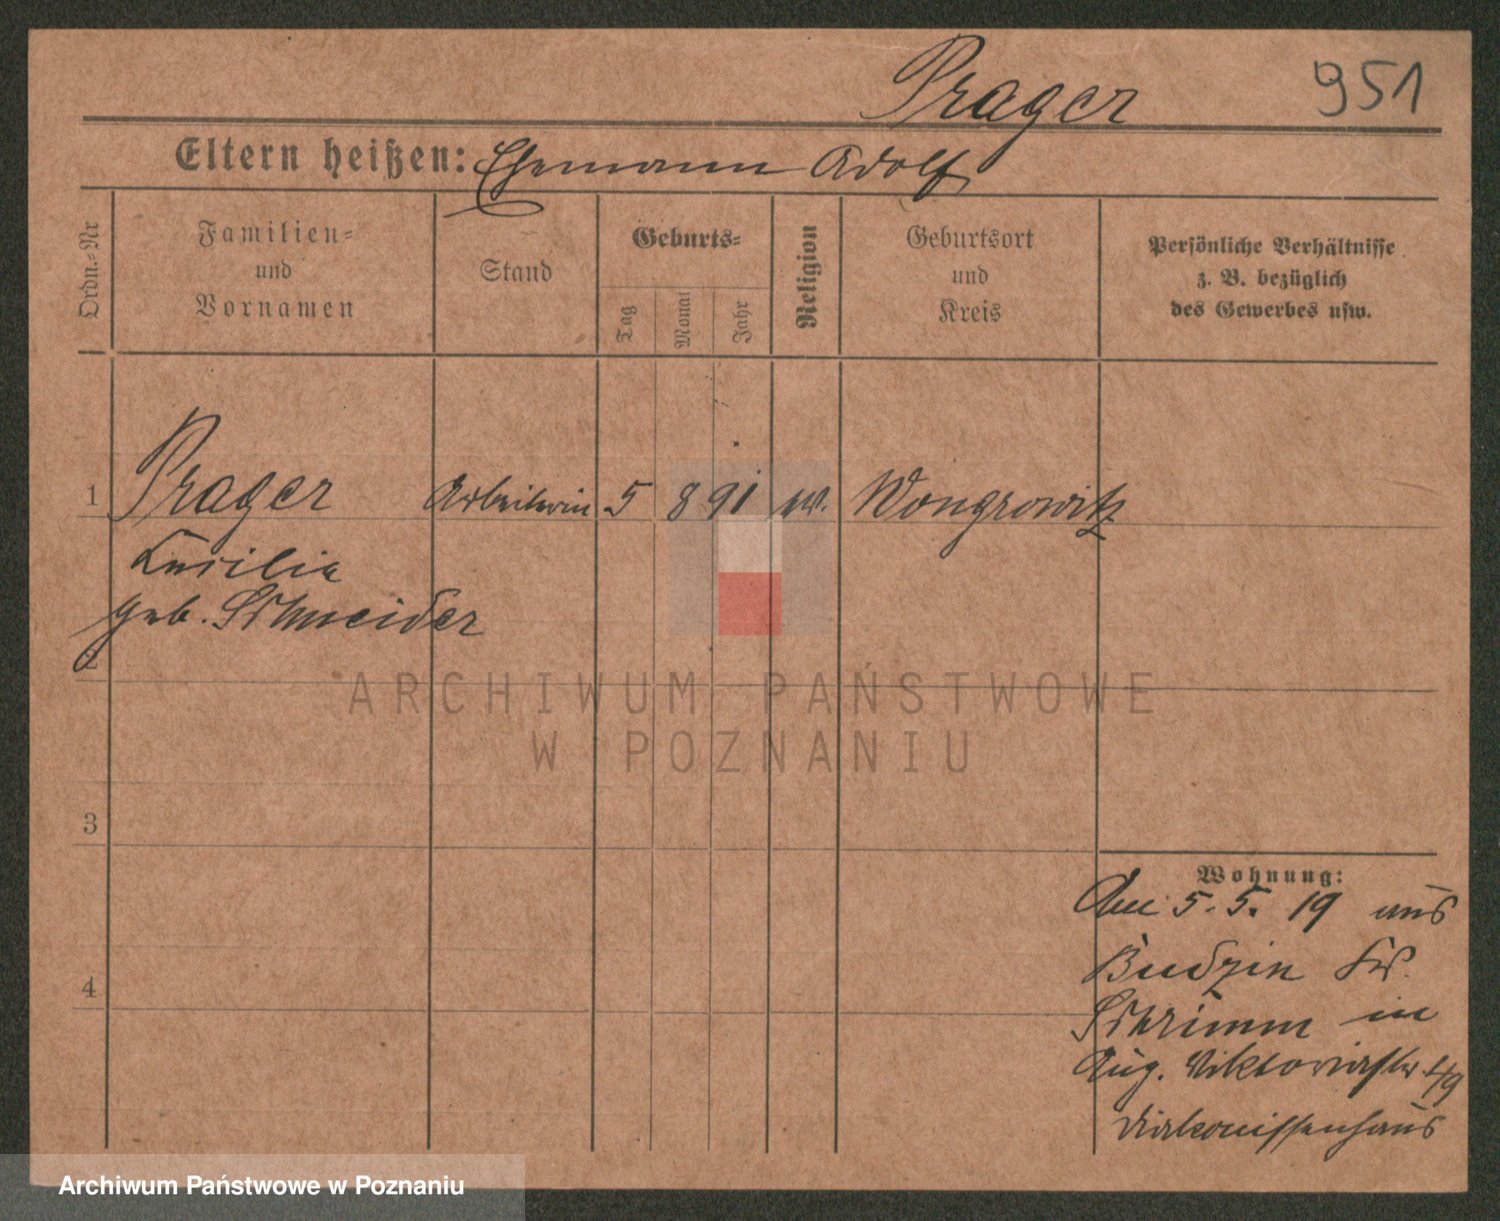 Prager 951
Eltern heißen: Ehemann Adolf
Ordn.-Nr
Familien-
und
Vornamen
Stand
Geburts-
Tag
Monat
Jahr
Religion
Geburtsort
und
Kreis
Persönliche Verhältnisse
z. B. bezüglich
des Gewerbes usw.
1 Prager Arbeiterin 5 8 91 ev. Wongrowitz
Cäcilie
geb. Schneider
2
ARCHIWUM PAŃSTWOWE
W POZNANIU
3
Wohnung:
5. 5. 19 aus
Budzin Kr.
4
Schrimm in
Aug. Viktoriastr 4/9
Diakonissenhaus
Archiwum Państwowe w Poznaniu